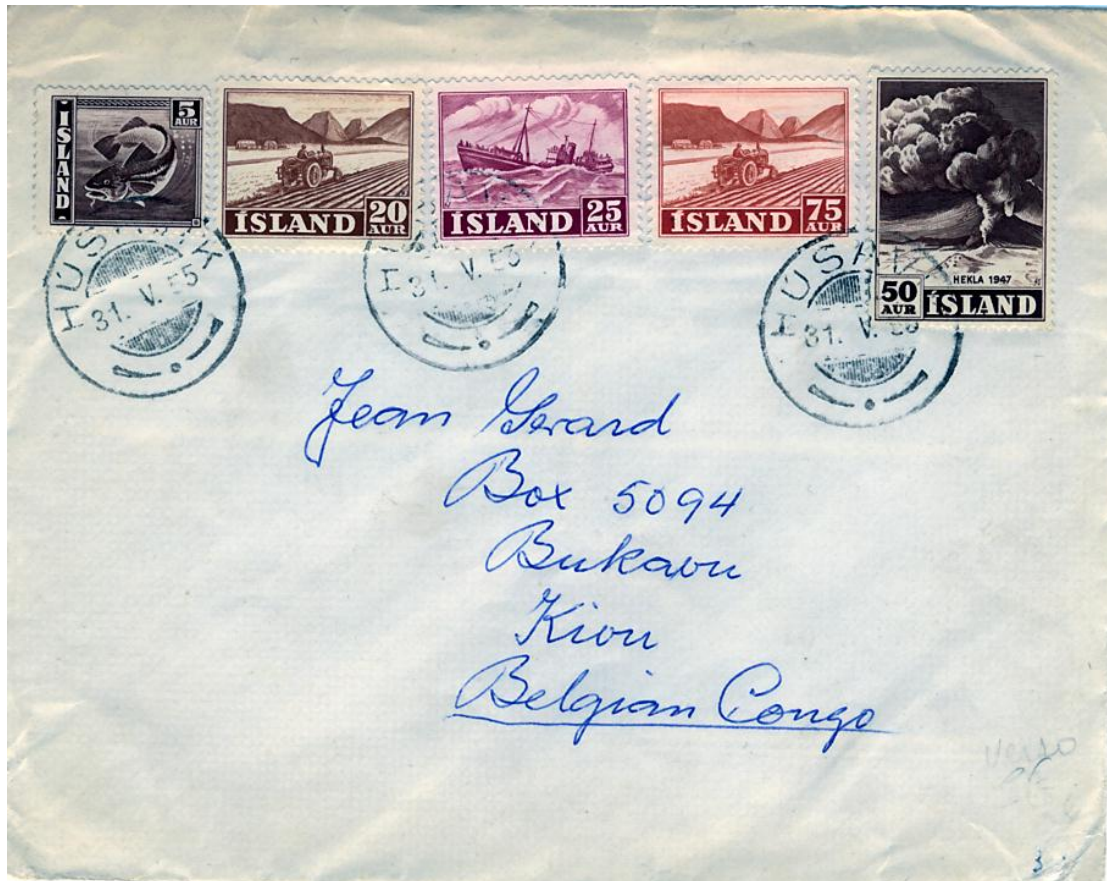 5
AUR
ÍSLAND
20
AUR
ÍSLAND
25
AUR
ÍSLAND
75
AUR
ÍSLAND
HEKLA 1947
50
AUR
ÍSLAND
HÚSAVÍK
31. V. 55
31. V. 55
HÚSAVÍK
31. V. 55
Jean Gerard
Box 5094
Bukavu
Kivu
Belgian Congo
verso
3